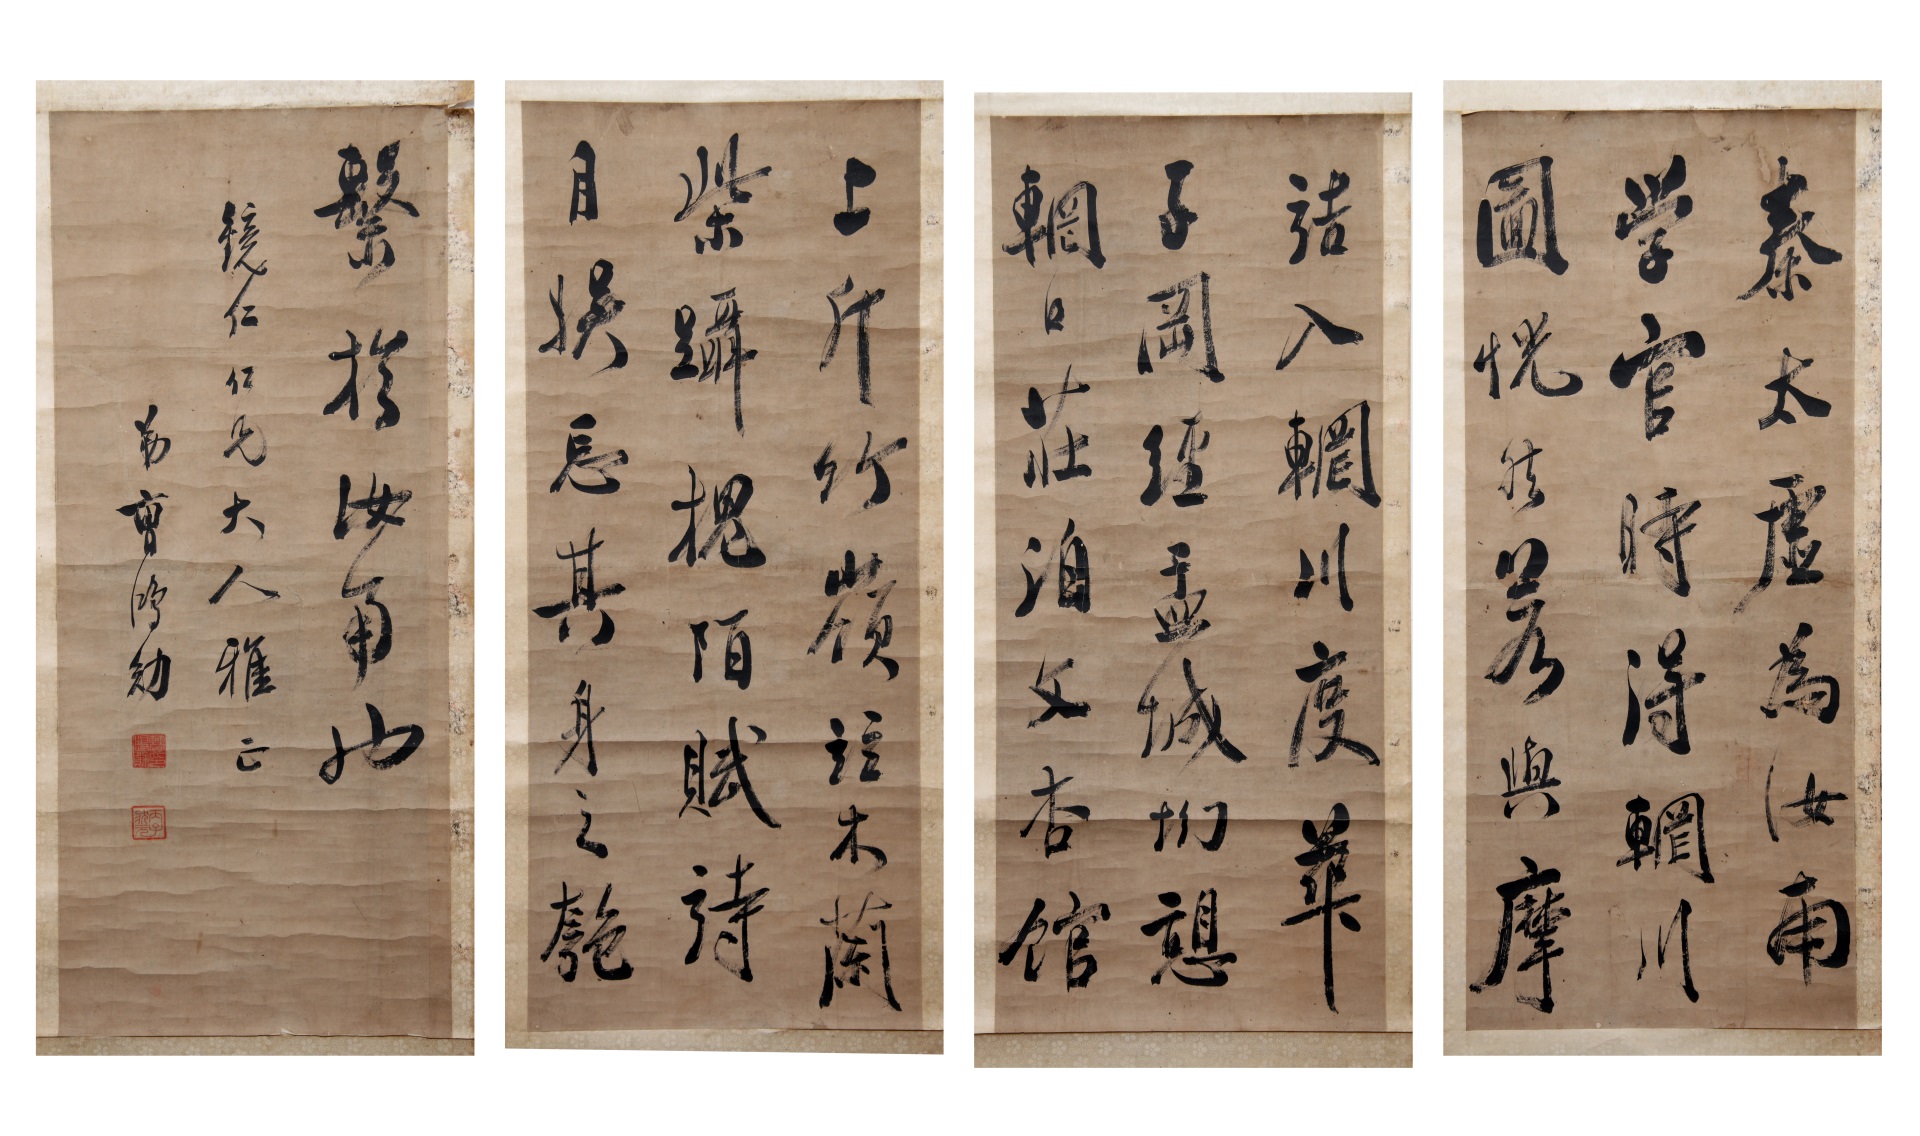 秦太虛為汝南
学官時得輞川
圖恍然若與摩
詰入輞川度華
子岡經孟城坳憩
輞口莊泊文杏舘
上斤竹嶺竝木蘭
柴躡槐陌賦詩
自娛忘其身之匏
繫於汝南也
鏡仁仁兄大人雅正
弟曹鴻勛